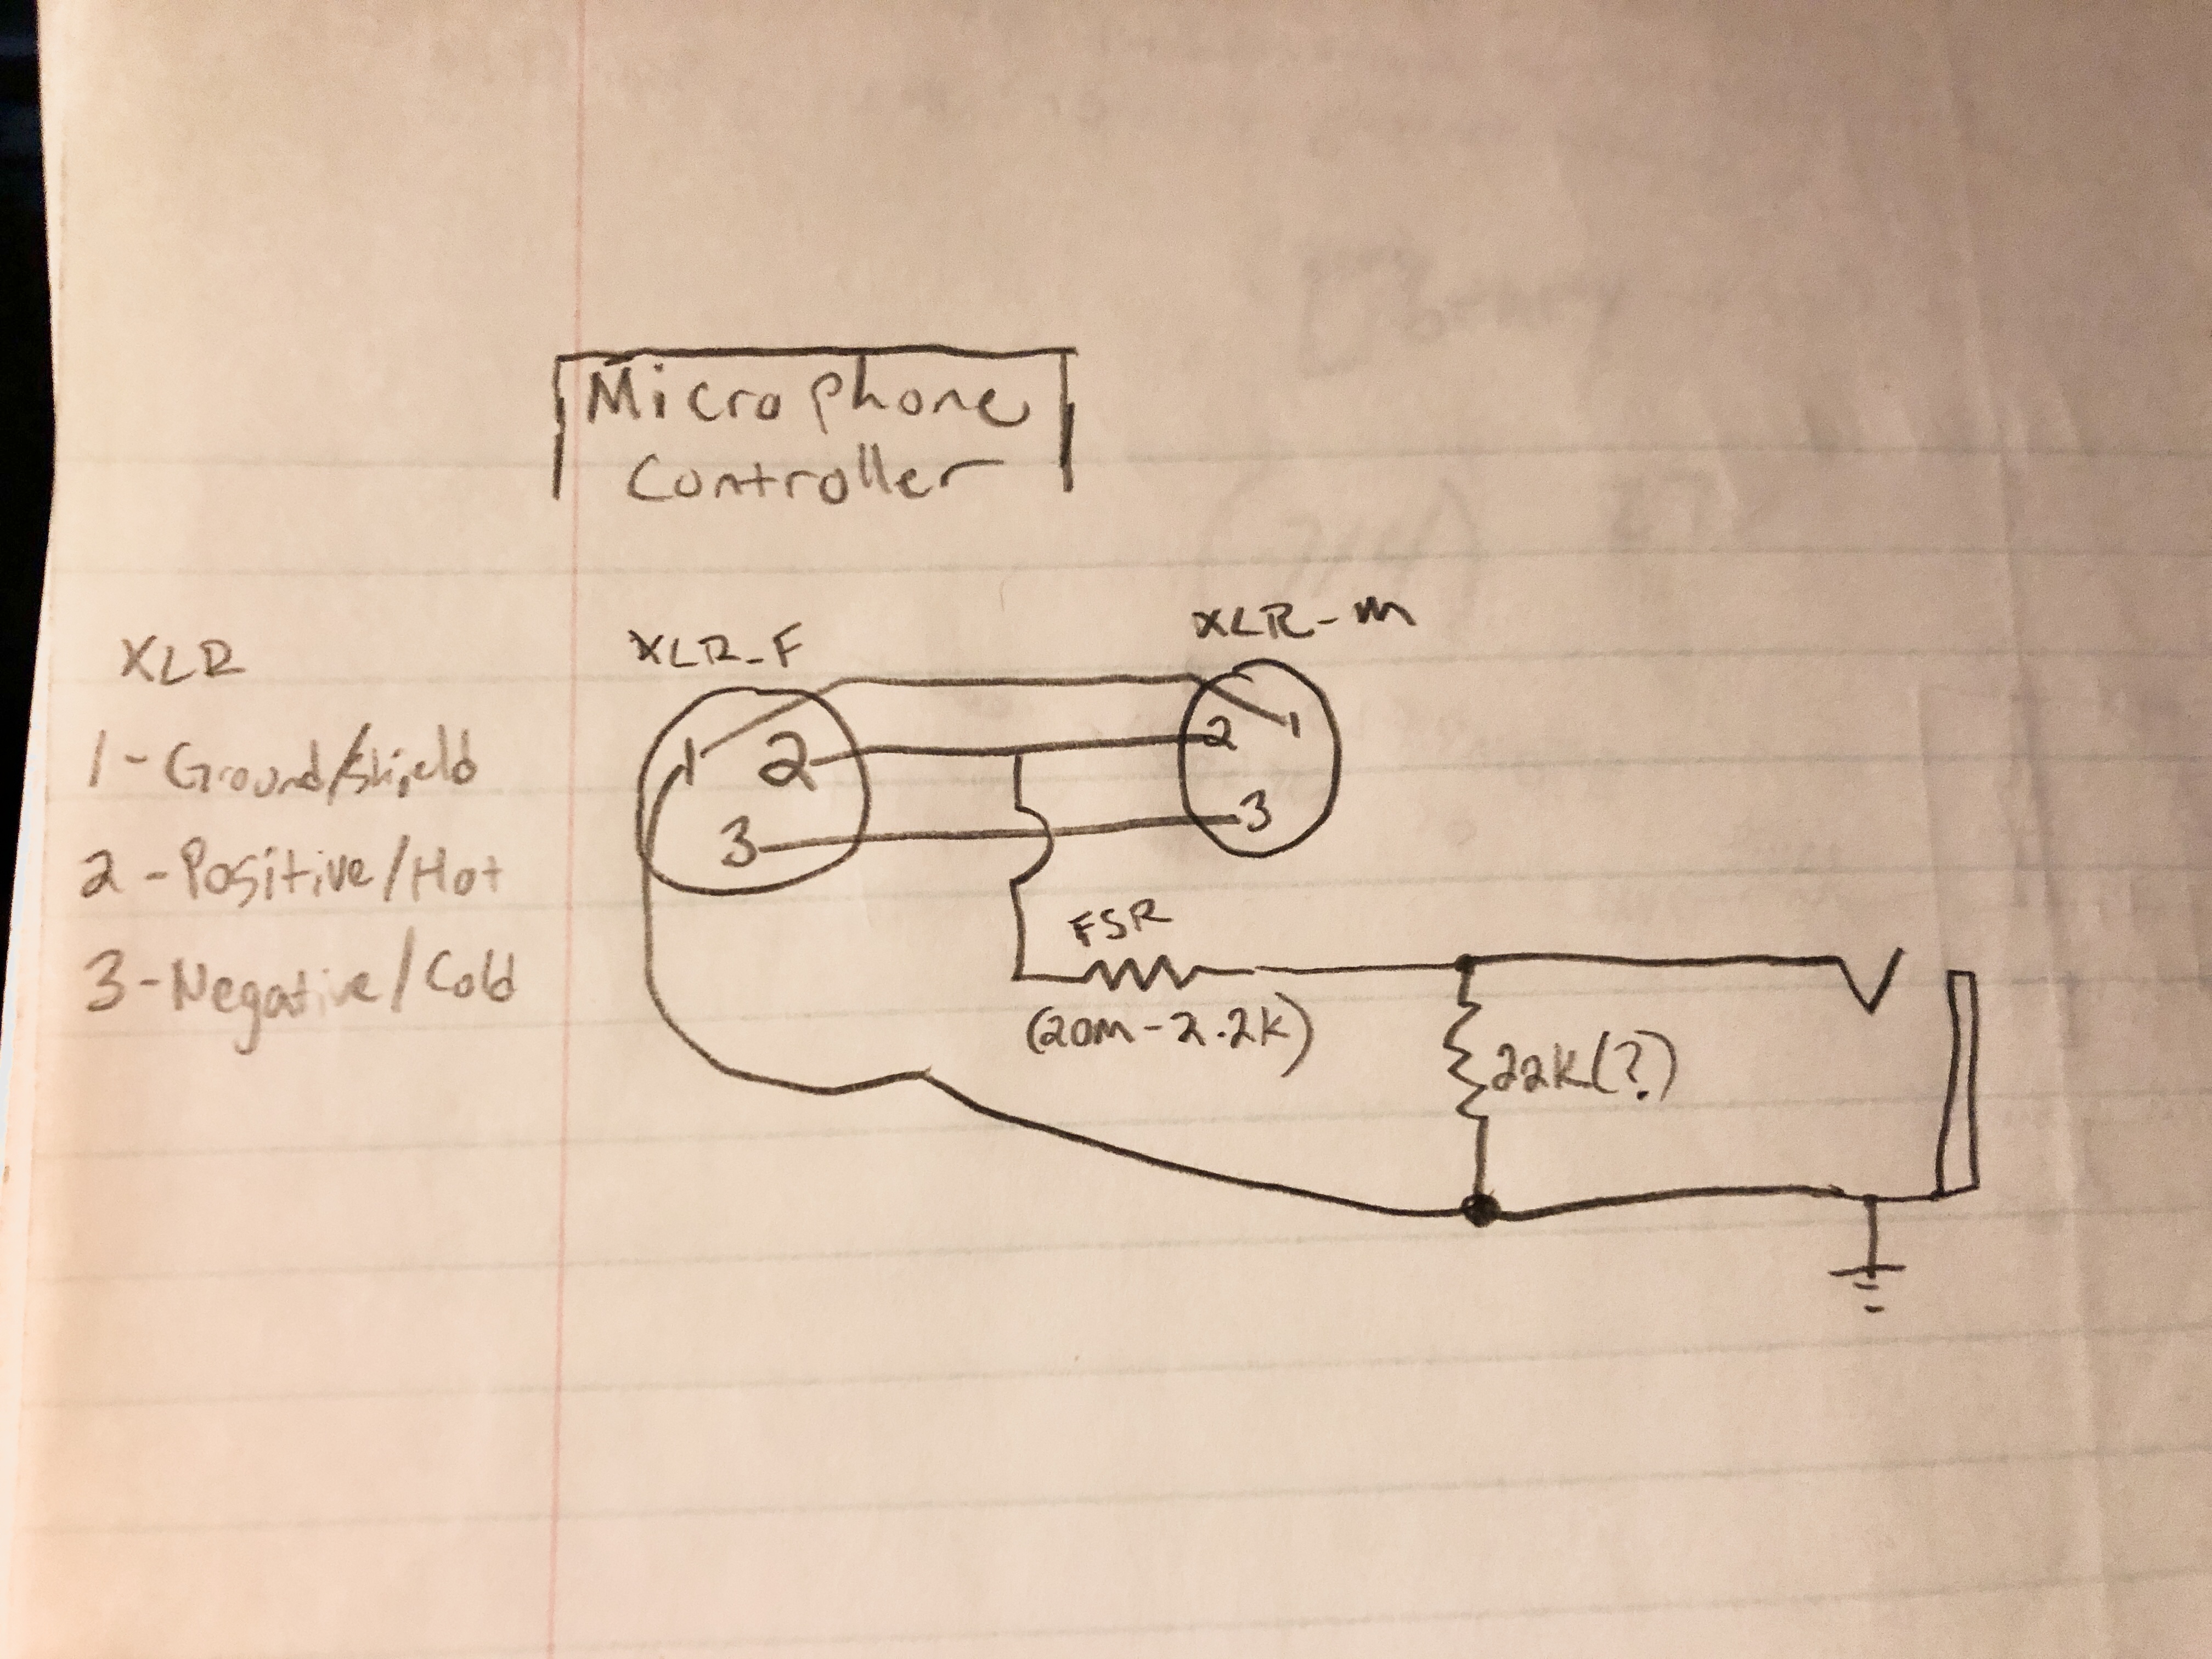 Microphone
Controller
XLR
1 - Ground/shield
2 - Positive/Hot
3 - Negative/Cold
XLR-F
XLR-m
1
2
3
1
2
3
FSR
(20M - 2.2K)
22K(?)